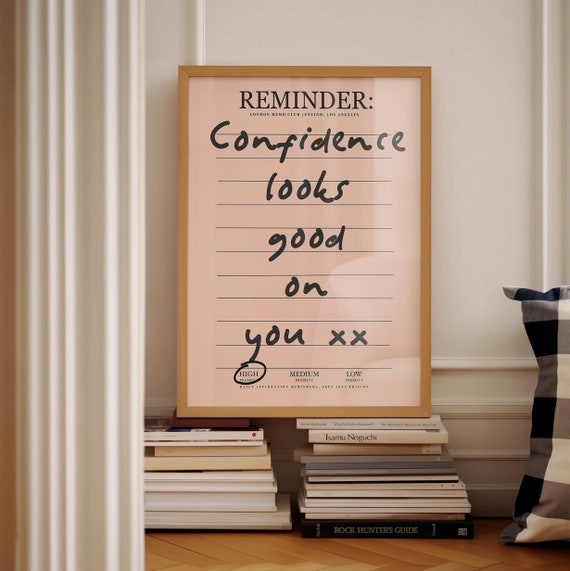 REMINDER:
LONDON MEMO CLUB | ENCINO, LOS ANGELES
Confidence
looks
good
on
you xx
HIGH MEDIUM LOW
PRIORITY PRIORITY PRIORITY
DAILY AFFIRMATION REMINDERS: SEPT 2017 EDITION
Isamu Noguchi
ROCK HUNTER'S GUIDE